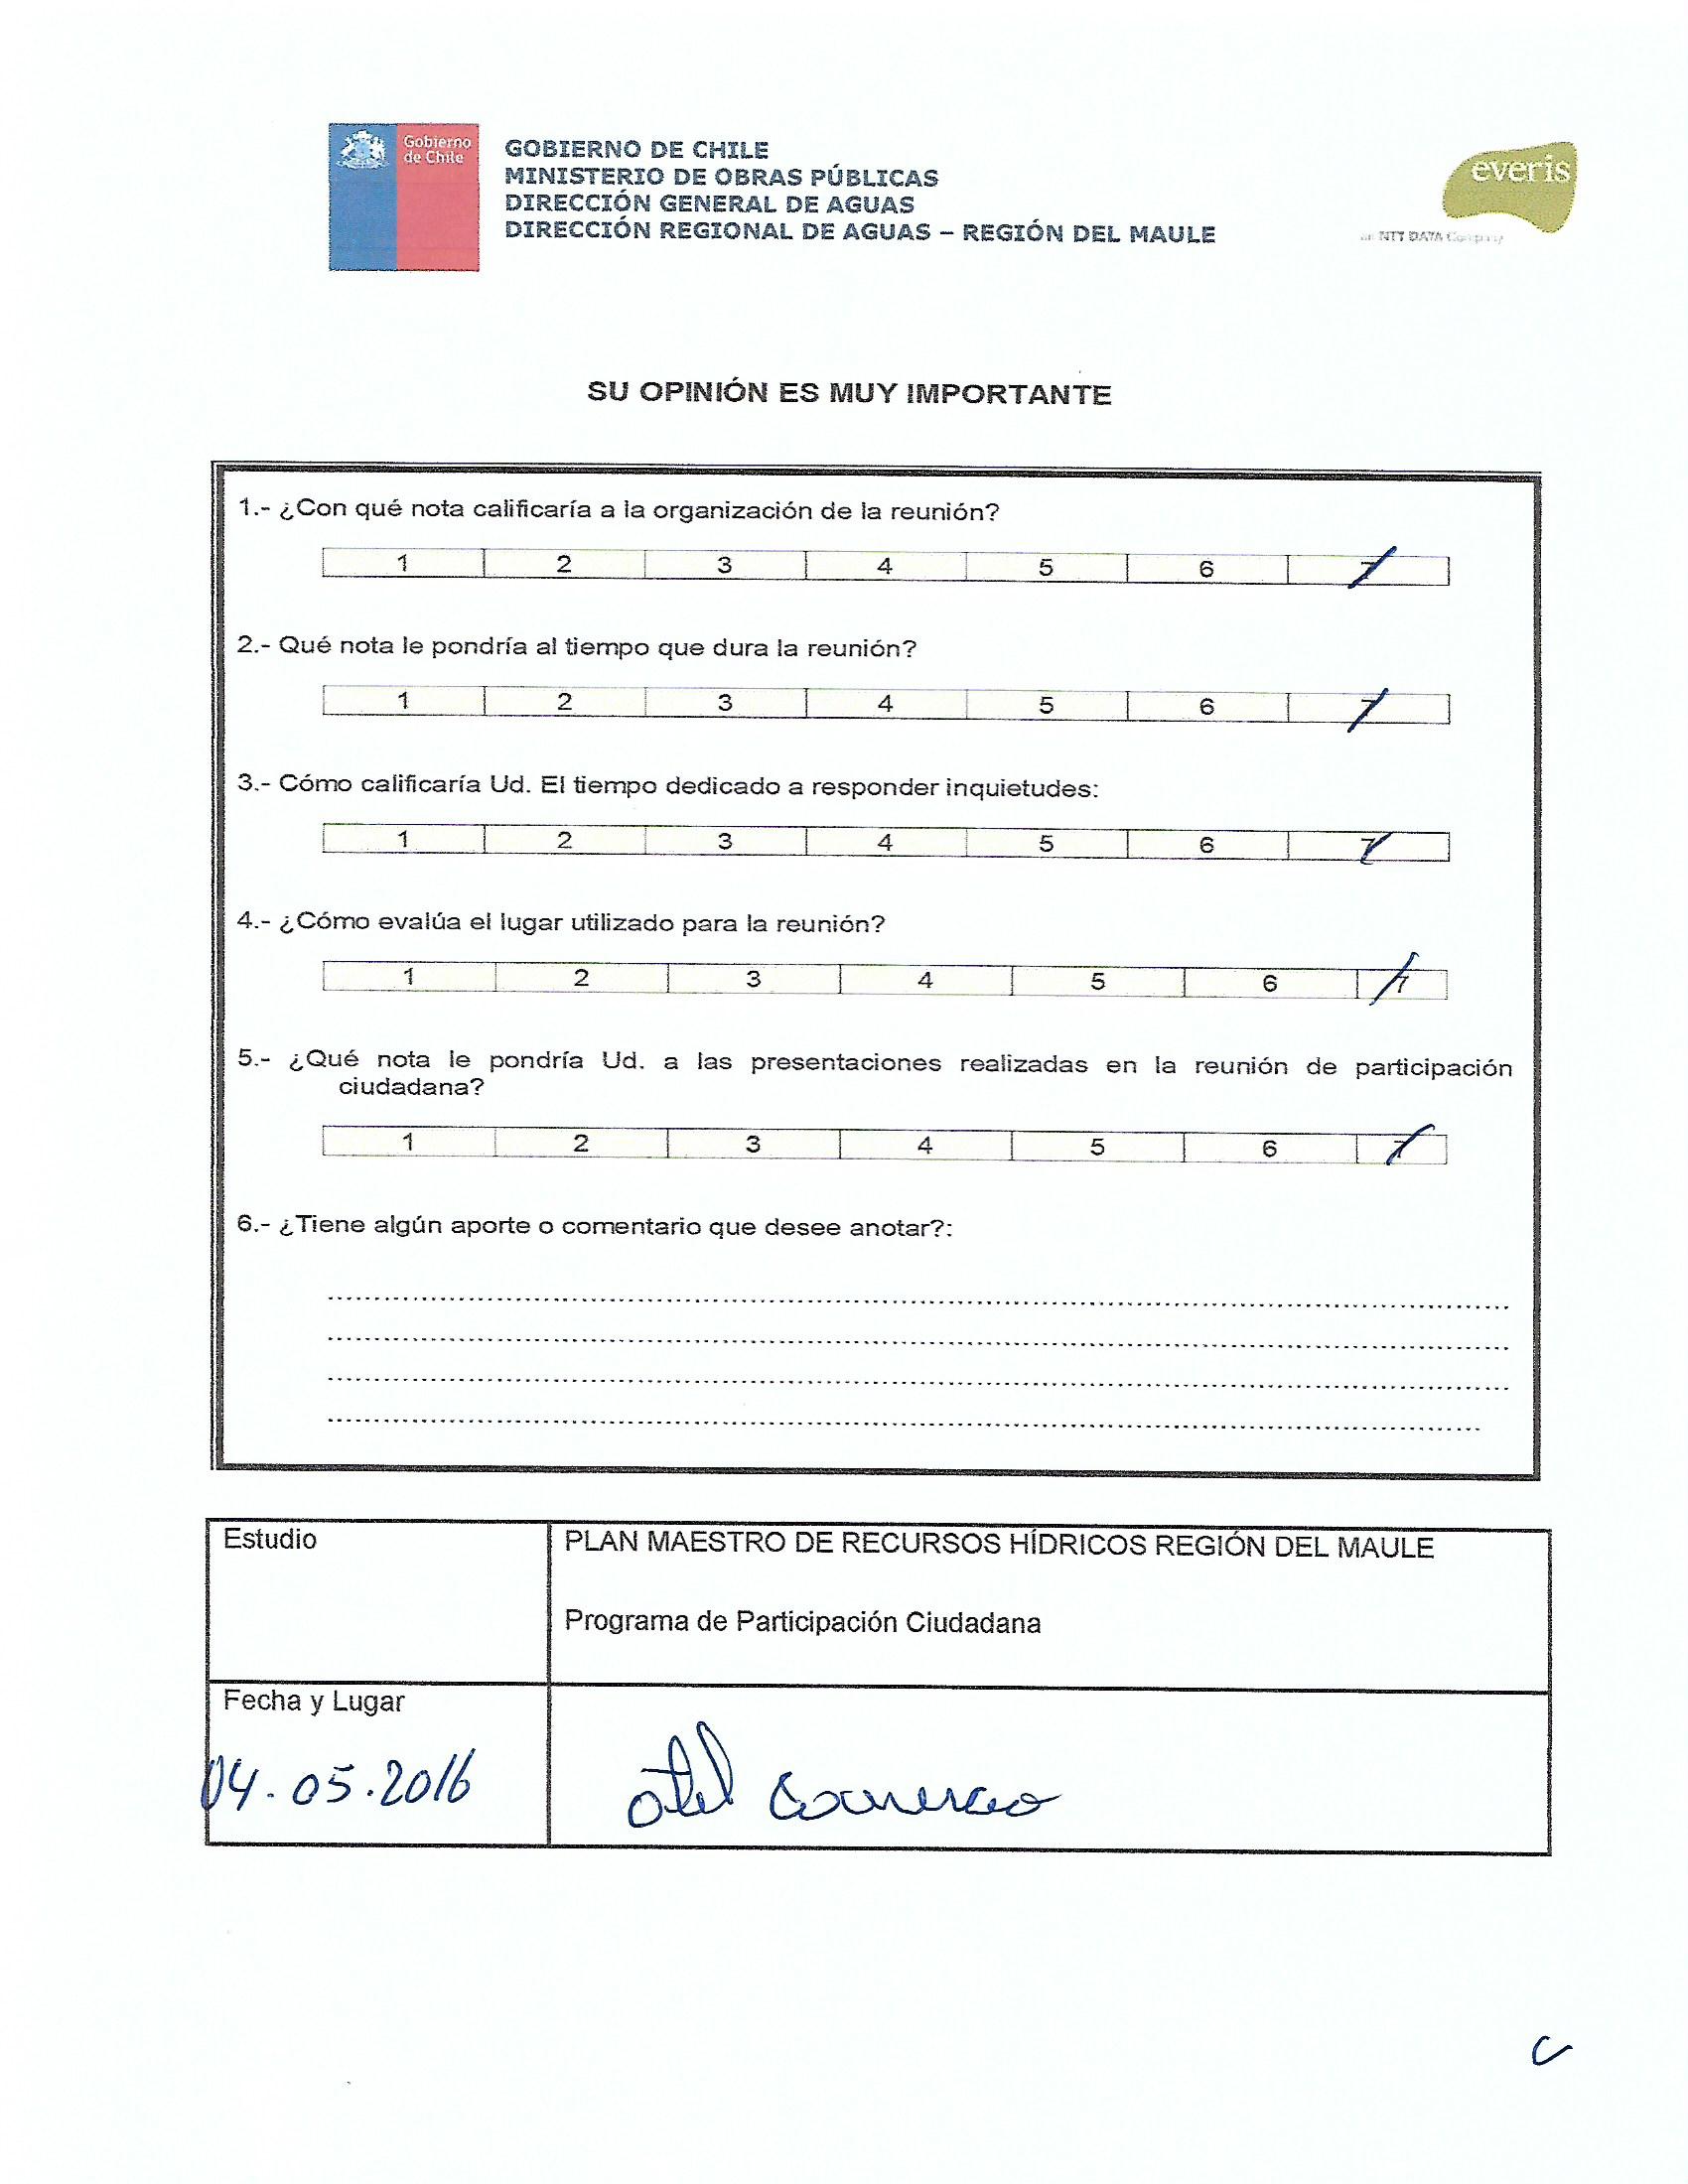 Gobierno
de Chile
GOBIERNO DE CHILE
MINISTERIO DE OBRAS PÚBLICAS
DIRECCIÓN GENERAL DE AGUAS
DIRECCIÓN REGIONAL DE AGUAS – REGIÓN DEL MAULE
everis
an NTT DATA Company
SU OPINIÓN ES MUY IMPORTANTE
1.- ¿Con qué nota calificaría a la organización de la reunión?
1 2 3 4 5 6 7
2.- Qué nota le pondría al tiempo que dura la reunión?
1 2 3 4 5 6 7
3.- Cómo calificaría Ud. El tiempo dedicado a responder inquietudes:
1 2 3 4 5 6 7
4.- ¿Cómo evalúa el lugar utilizado para la reunión?
1 2 3 4 5 6 7
5.- ¿Qué nota le pondría Ud. a las presentaciones realizadas en la reunión de participación
ciudadana?
1 2 3 4 5 6 7
6.- ¿Tiene algún aporte o comentario que desee anotar?:
Estudio
PLAN MAESTRO DE RECURSOS HÍDRICOS REGIÓN DEL MAULE
Programa de Participación Ciudadana
Fecha y Lugar
04.05.2016
otel comercio